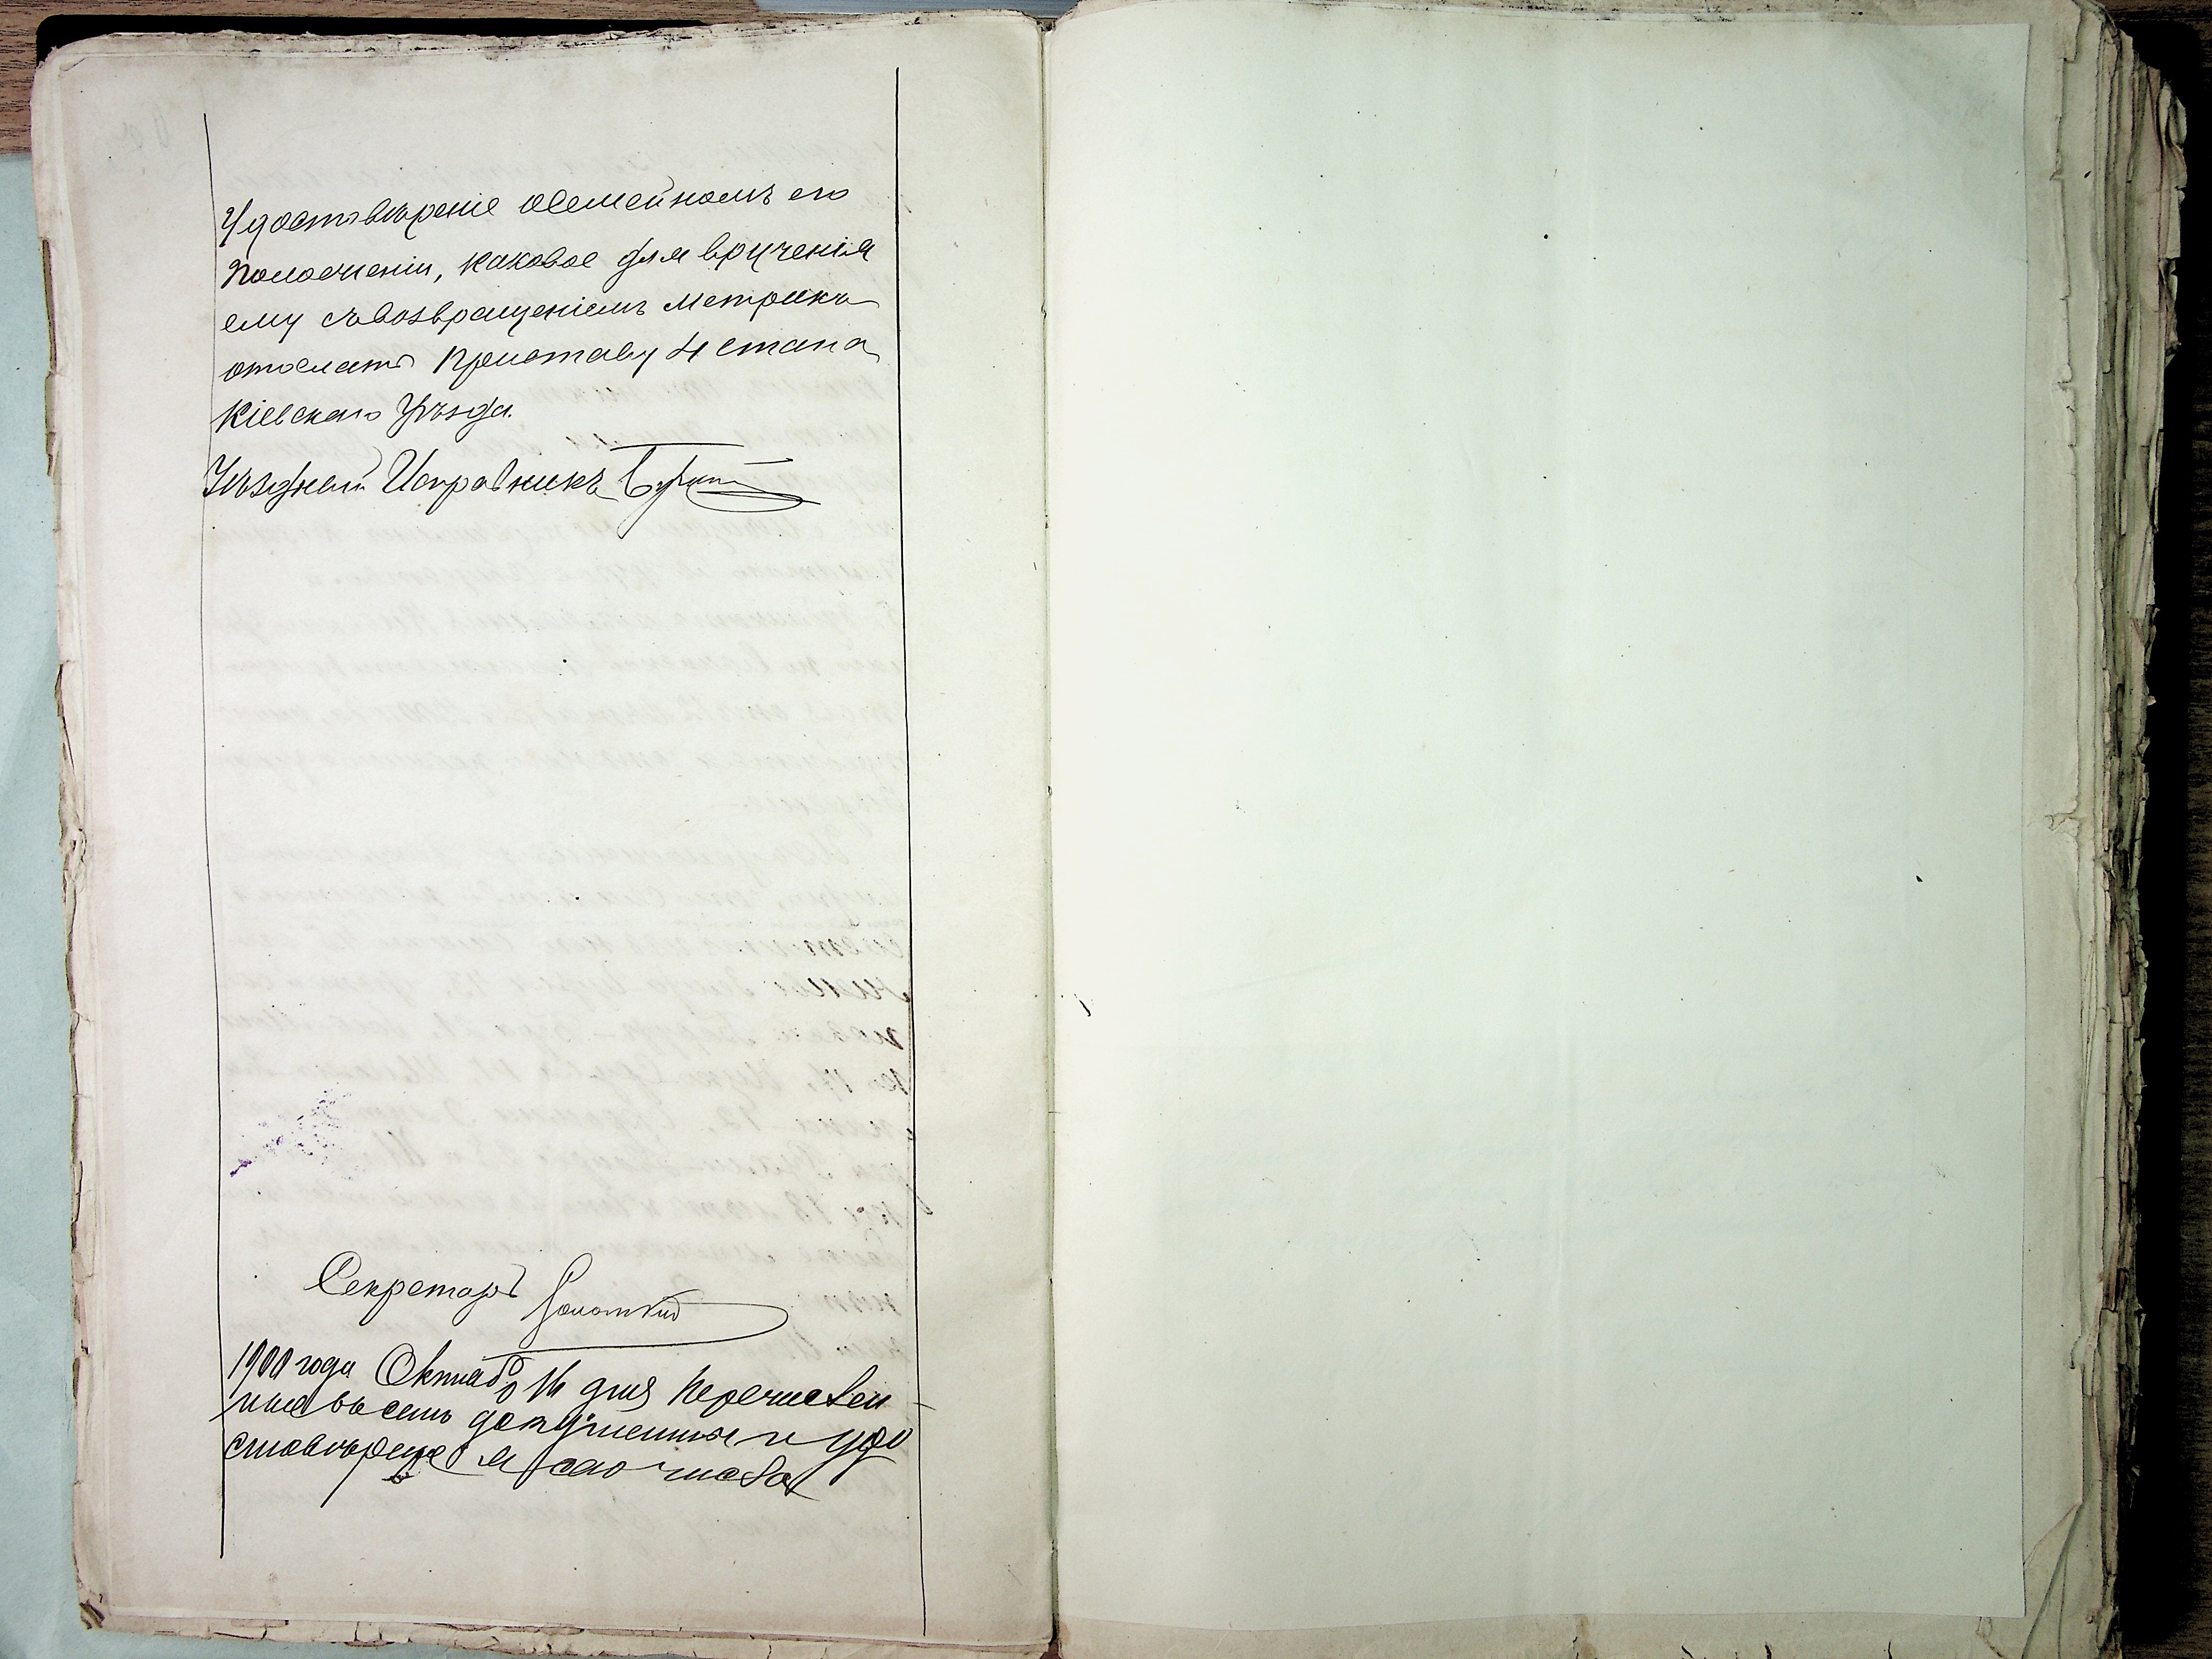 Удостовѣреніе о семейномъ его
положеніи, каковое для врученія
ему съ возвращеніемъ метрикъ
отослать Приставу 4 стана
Кіевскаго Уѣзда.
Уѣздный Исправникъ
Секретарь
1900 года Октяб 16 дня перечислен-
ные восемь документов и удо
стовѣреніе я получилъ